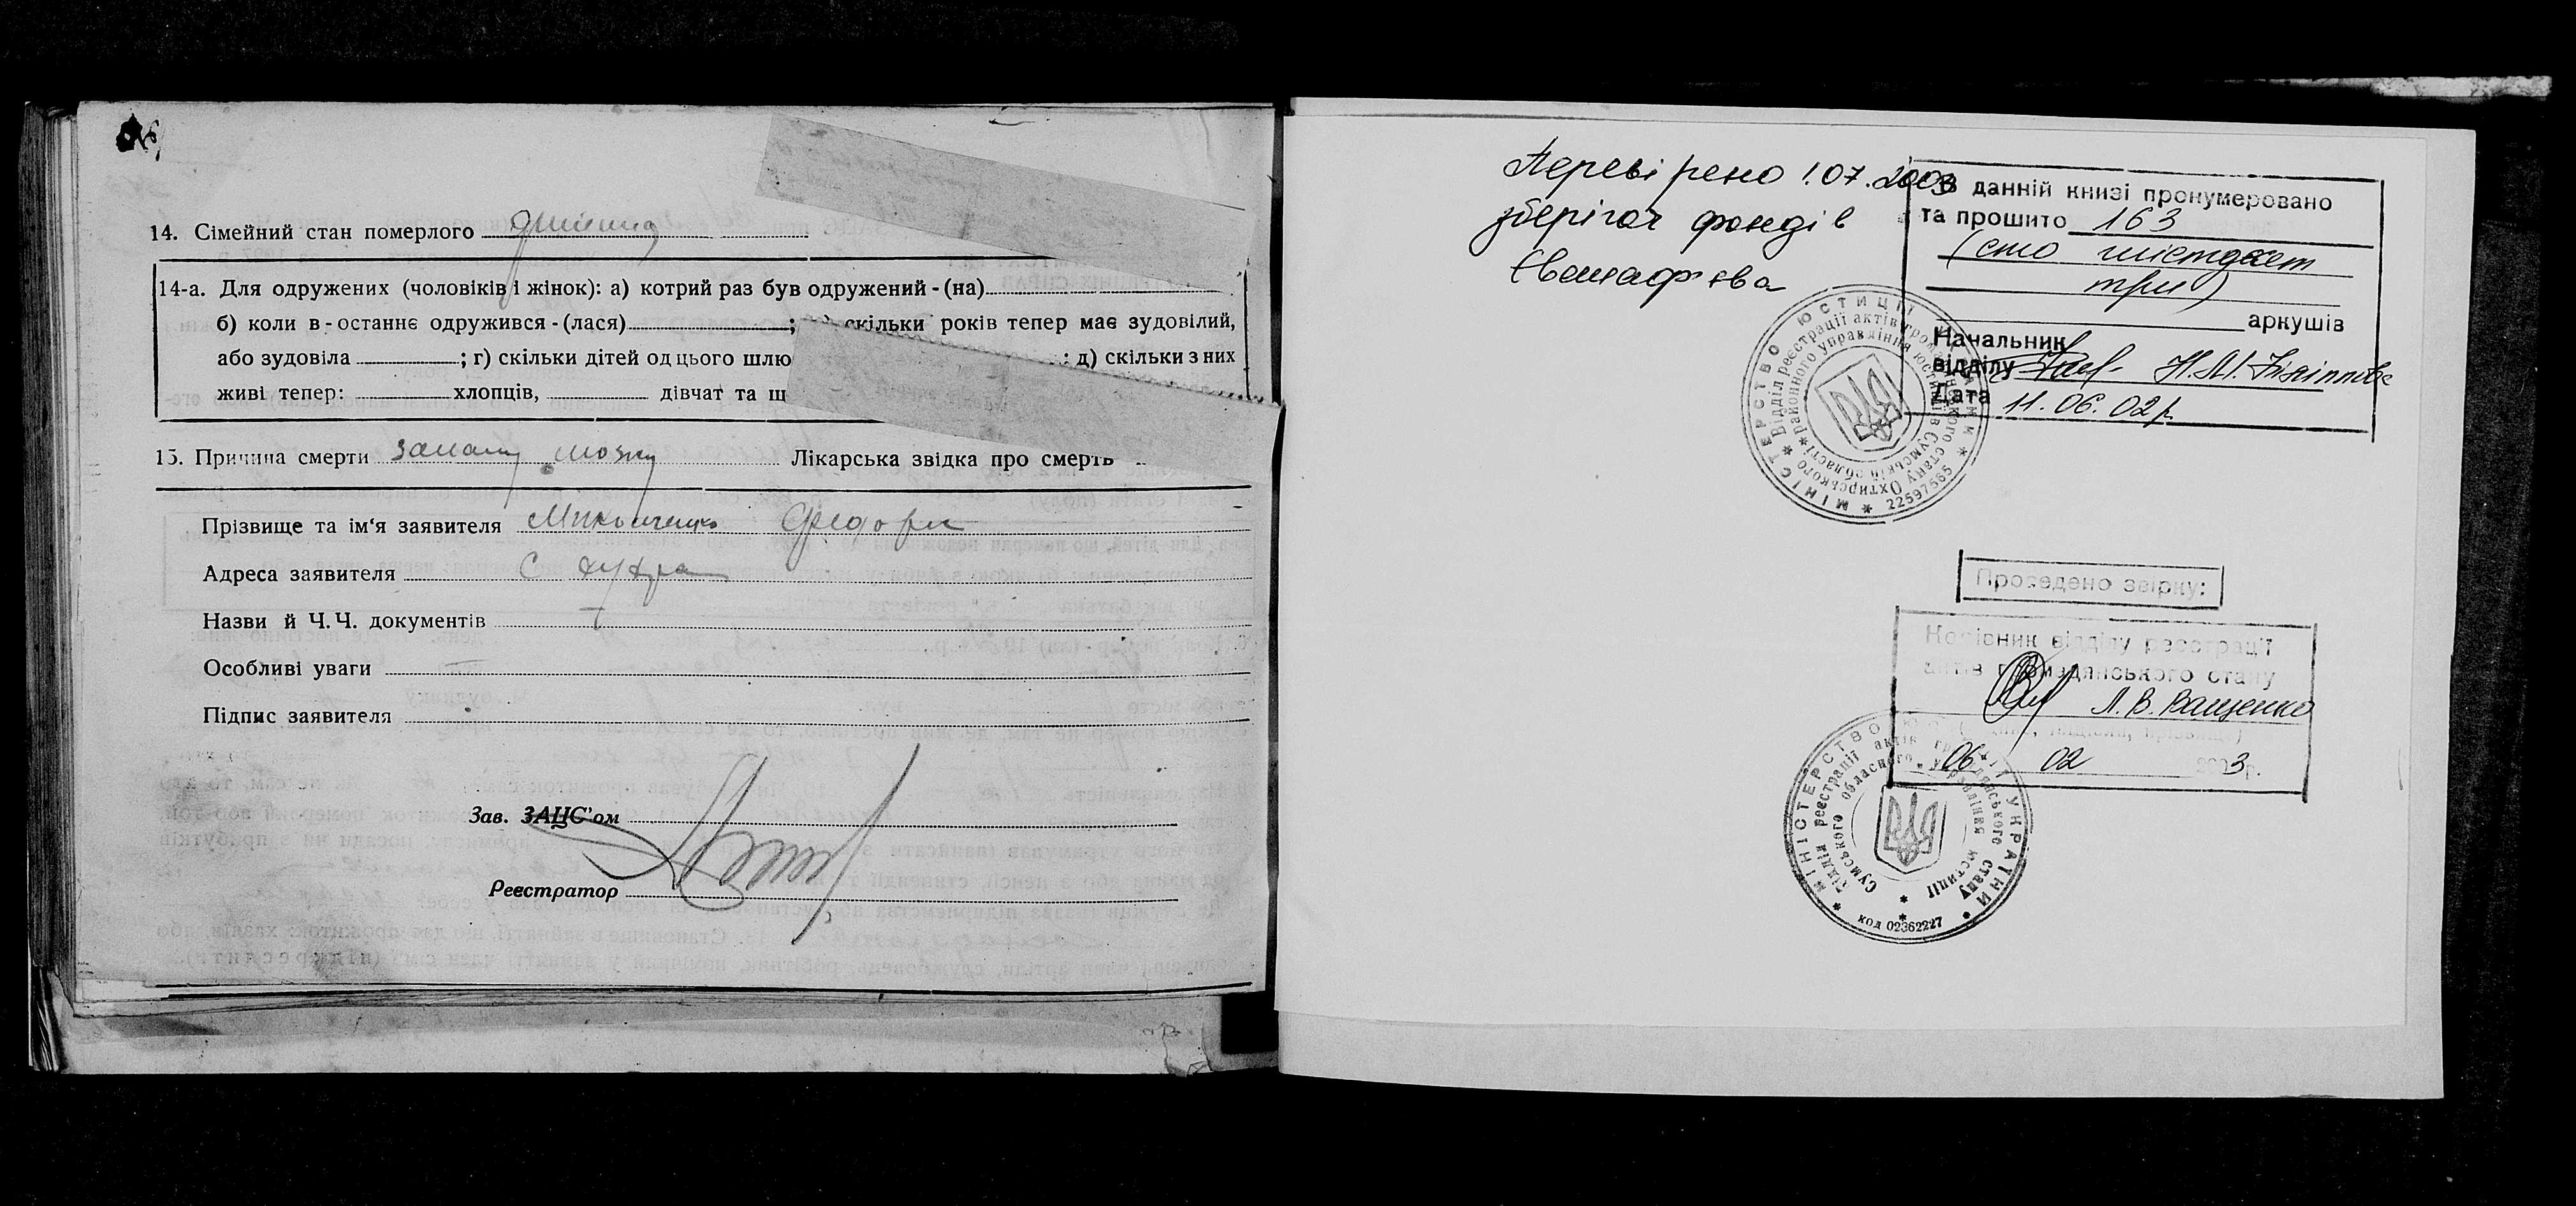 14. Сімейний стан померлого
14-а. Для одружених (чоловіків і жінок): а) котрий раз був одружений - (на)
б) коли в-останнє одружився - (лася) ; скільки років тепер має зудовілий,
або зудовіла ; г) скільки дітей од цього шлю : д) скільки з них
живі тепер: хлопців, дівчат та ш
15. Причина смерти мозку Лікарська звідка про смерть
Прізвище та ім'я заявителя Федора
Адреса заявителя с Хухра
Назви й Ч.Ч. документів —
Особливі уваги
Підпис заявителя
Зав. ЗАЦС'ом
Реєстратор
Перевірено 1.07.2003
зберігач фондів
Євстаф'єва
В данній книзі пронумеровано
та прошито 163
(сто шістдесят
три)
аркушів
Начальник
відділу
Дата 11.06.02р.
МІНІСТЕРСТВО ЮСТИЦІЇ
Відділ реєстрації актів громадянського стану Охтирського
районного управління юстиції в Сумській області
22597565
Проведено звірку:
Керівник відділу реєстрації
актів громадянського стану
Л.В. Ващенко
06 02 2003р.
МІНІСТЕРСТВО ЮСТИЦІЇ УКРАЇНИ
Відділ реєстрації актів громадянського стану
Сумського обласного управління юстиції
код 02362227